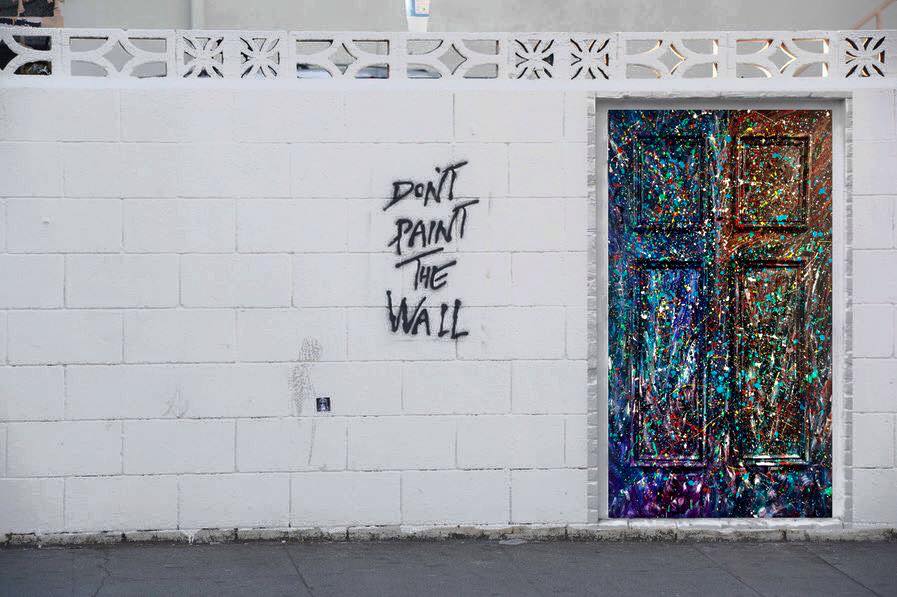 DON'T
PAINT
THE
WALL